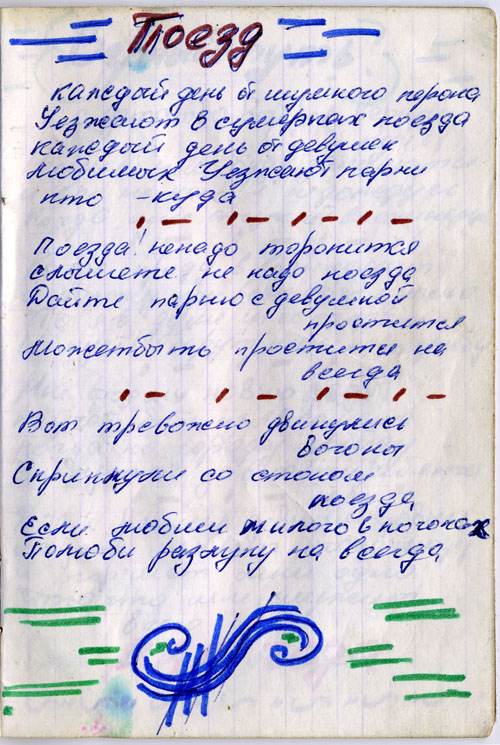 Поезд
каждый день от шумного перона
Уезжают в сумерках поезда
каждый день от девушек
любимых Уезжают парни
кто - куда
Поезда! ненадо торопится
слышете не надо поезда
Дайте парню с девушкой
простится
Можетбыть простится на
всегда
Вот тревожно двинулись
вогоны
Скрипнули со стоном
поезда
Если любиш милого в погонах
Полюби разлуку на всегда